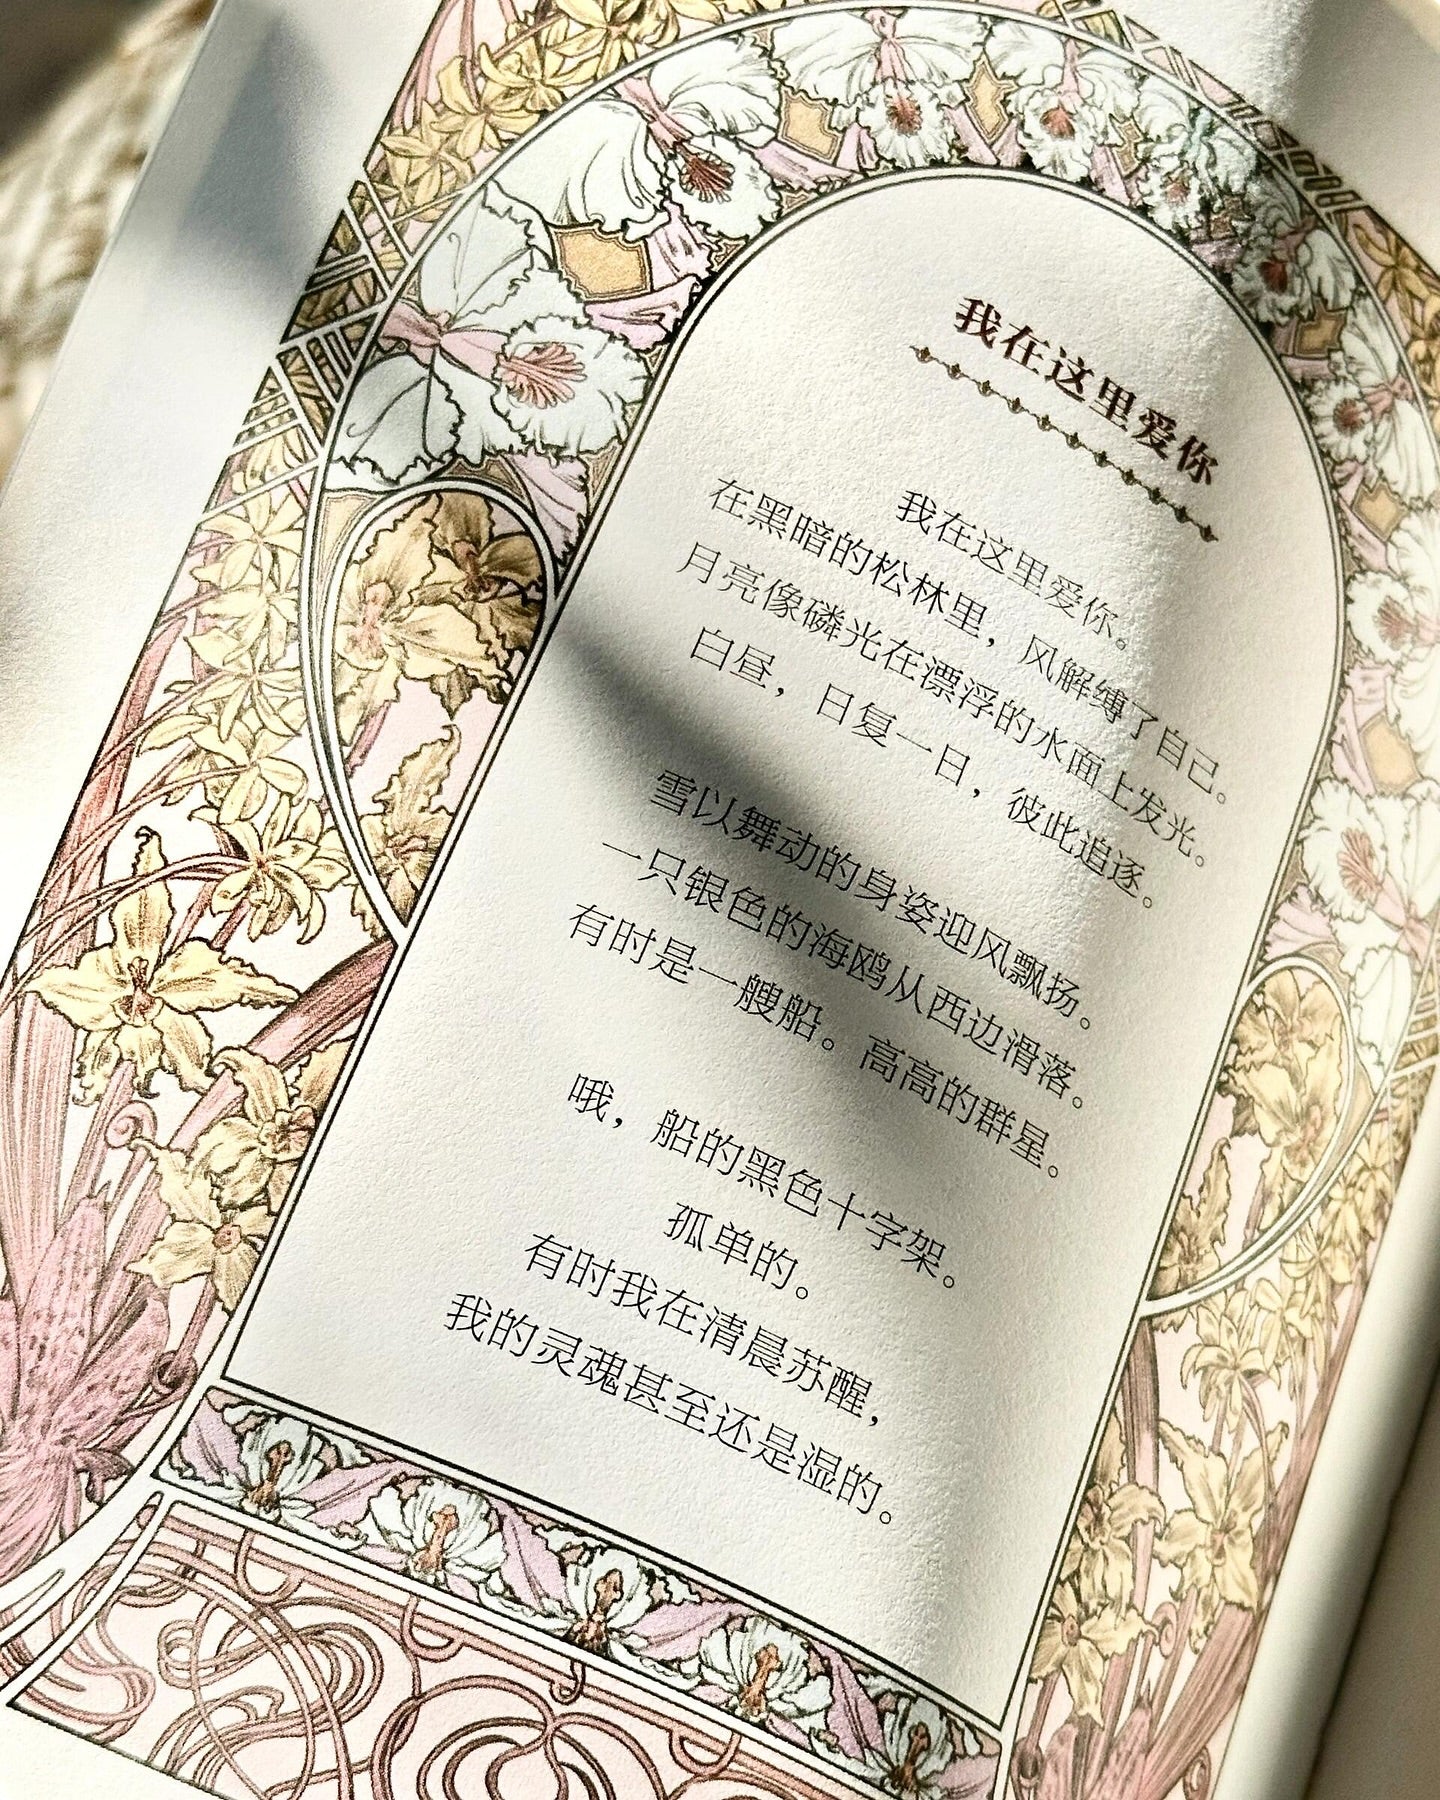 我在这里爱你
我在这里爱你。
在黑暗的松林里，风解缚了自己。
月亮像磷光在漂浮的水面上发光。
白昼，日复一日，彼此追逐。
雪以舞动的身姿迎风飘扬。
一只银色的海鸥从西边滑落。
有时是一艘船。高高的群星。
哦，船的黑色十字架。
孤单的。
有时我在清晨苏醒，
我的灵魂甚至还是湿的。